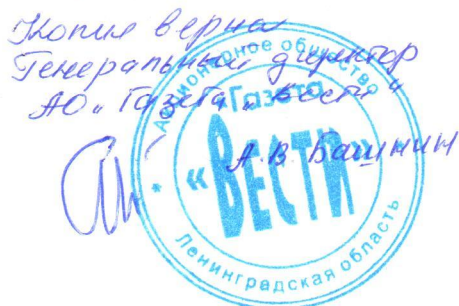 Копия верна
Генеральный директор
АО „Газета „Вести"
А.В. Башнин
Акционерное общество
«Газета
«ВЕСТИ»
Ленинградская область